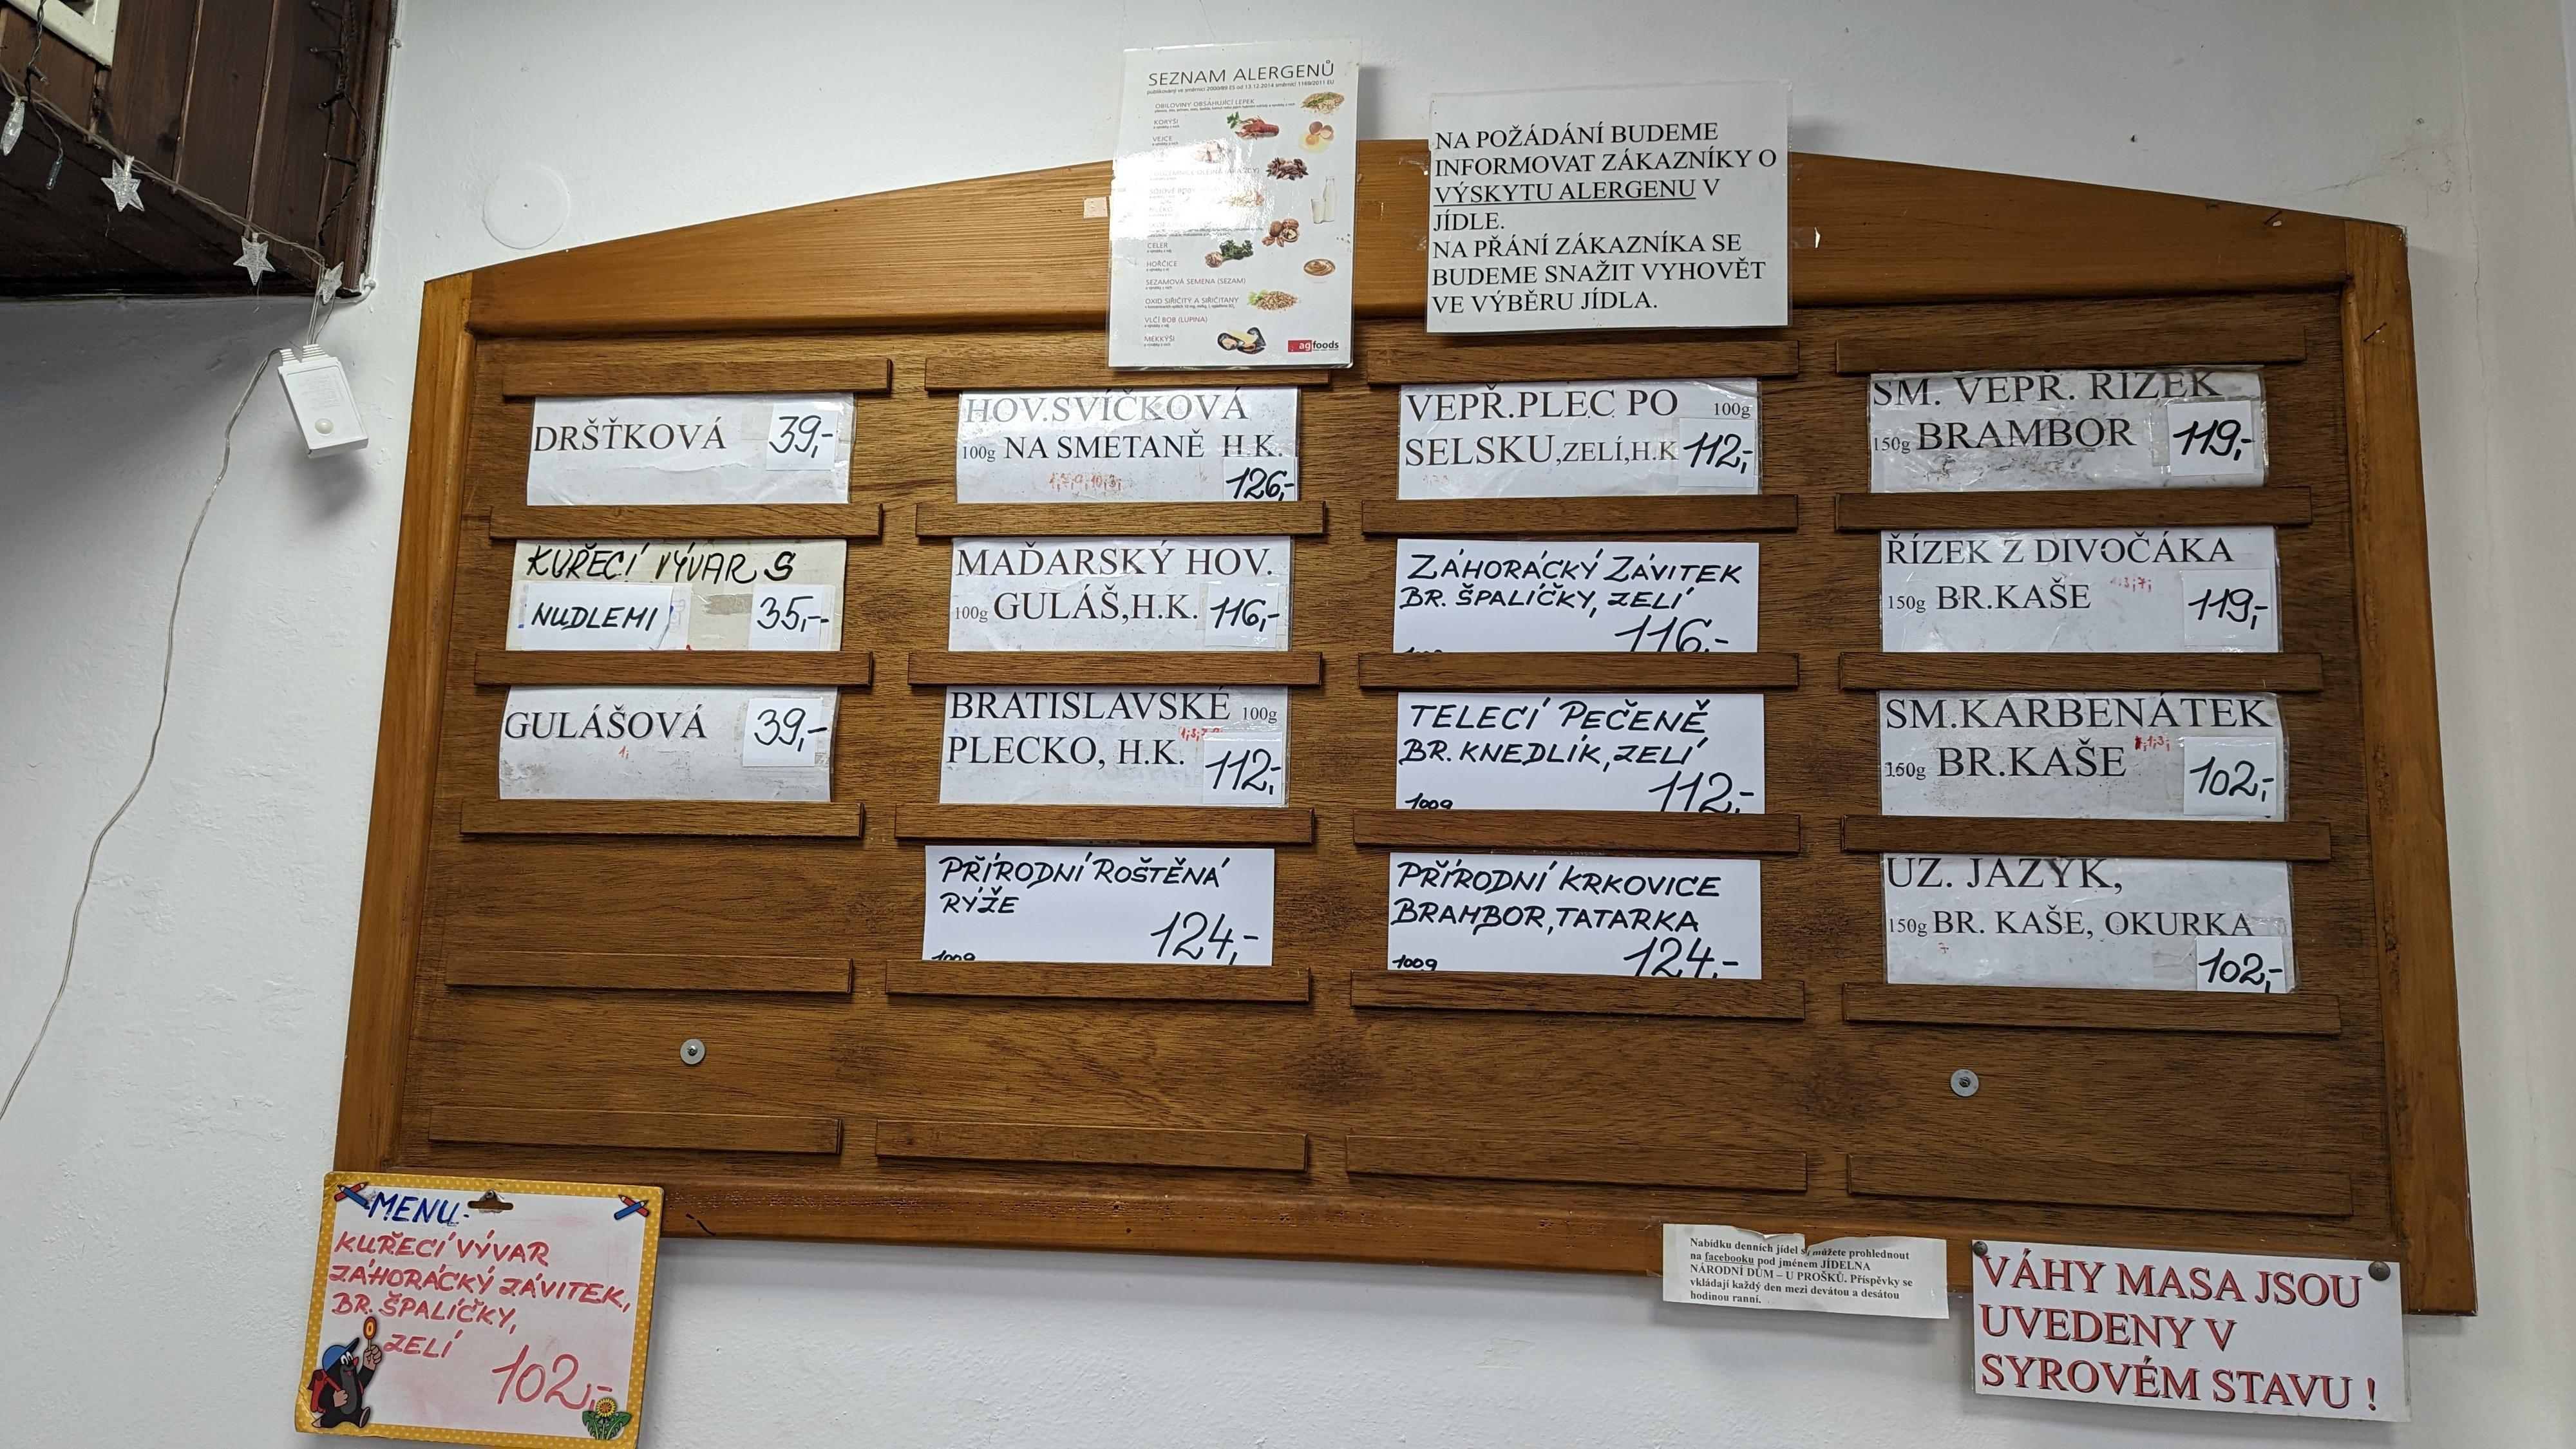 SEZNAM ALERGENŮ
publikovaný ve směrnici 2000/89 ES od 13.12.2014 směrnicí 1169/2011 EU
OBILOVINY OBSAHUJÍCÍ LEPEK
KORÝŠI
VEJCE
CELER
HOŘČICE
SEZAMOVÁ SEMENA (SEZAM)
OXID SIŘIČITÝ A SIŘIČITANY
VLČÍ BOB (LUPINA)
MĚKKÝŠI
ag foods
NA POŽÁDÁNÍ BUDEME
INFORMOVAT ZÁKAZNÍKY O
VÝSKYTU ALERGENU V
JÍDLE.
NA PŘÁNÍ ZÁKAZNÍKA SE
BUDEME SNAŽIT VYHOVĚT
VE VÝBĚRU JÍDLA.
DRŠŤKOVÁ 39,-
KUŘECÍ VÝVAR S
NUDLEMI 35,-
GULÁŠOVÁ 39,-
1;
HOV.SVÍČKOVÁ
100g NA SMETANĚ H.K.
126,-
MAĎARSKÝ HOV.
100g GULÁŠ,H.K. 116,-
BRATISLAVSKÉ 100g
PLECKO, H.K. 112,-
PŘÍRODNÍ ROŠTĚNÁ
RÝŽE
124,-
100g
VEPŘ.PLEC PO 100g
SELSKU,ZELÍ,H.K 112,-
ZÁHORÁCKÝ ZÁVITEK
BR. ŠPALÍČKY, ZELÍ
116,-
TELECÍ PEČENĚ
BR. KNEDLÍK, ZELÍ
112,-
100g
PŘÍRODNÍ KRKOVICE
BRAMBOR, TATARKA
100g 124,-
SM. VEPŘ. ŘÍZEK
150g BRAMBOR 119,-
ŘÍZEK Z DIVOČÁKA
150g BR.KAŠE 119,-
SM.KARBENÁTEK
150g BR.KAŠE 102,-
UZ. JAZYK,
150g BR. KAŠE, OKURKA
7
102,-
MENU-
KUŘECÍ VÝVAR
ZÁHORÁCKÝ ZÁVITEK,
BR. ŠPALÍČKY,
ZELÍ
102,-
Nabídku denních jídel si můžete prohlednout
na facebooku pod jménem JÍDELNA
NÁRODNÍ DŮM – U PROŠKŮ. Příspěvky se
vkládají každý den mezi devátou a desátou
hodinou ranní.
VÁHY MASA JSOU
UVEDENY V
SYROVÉM STAVU !